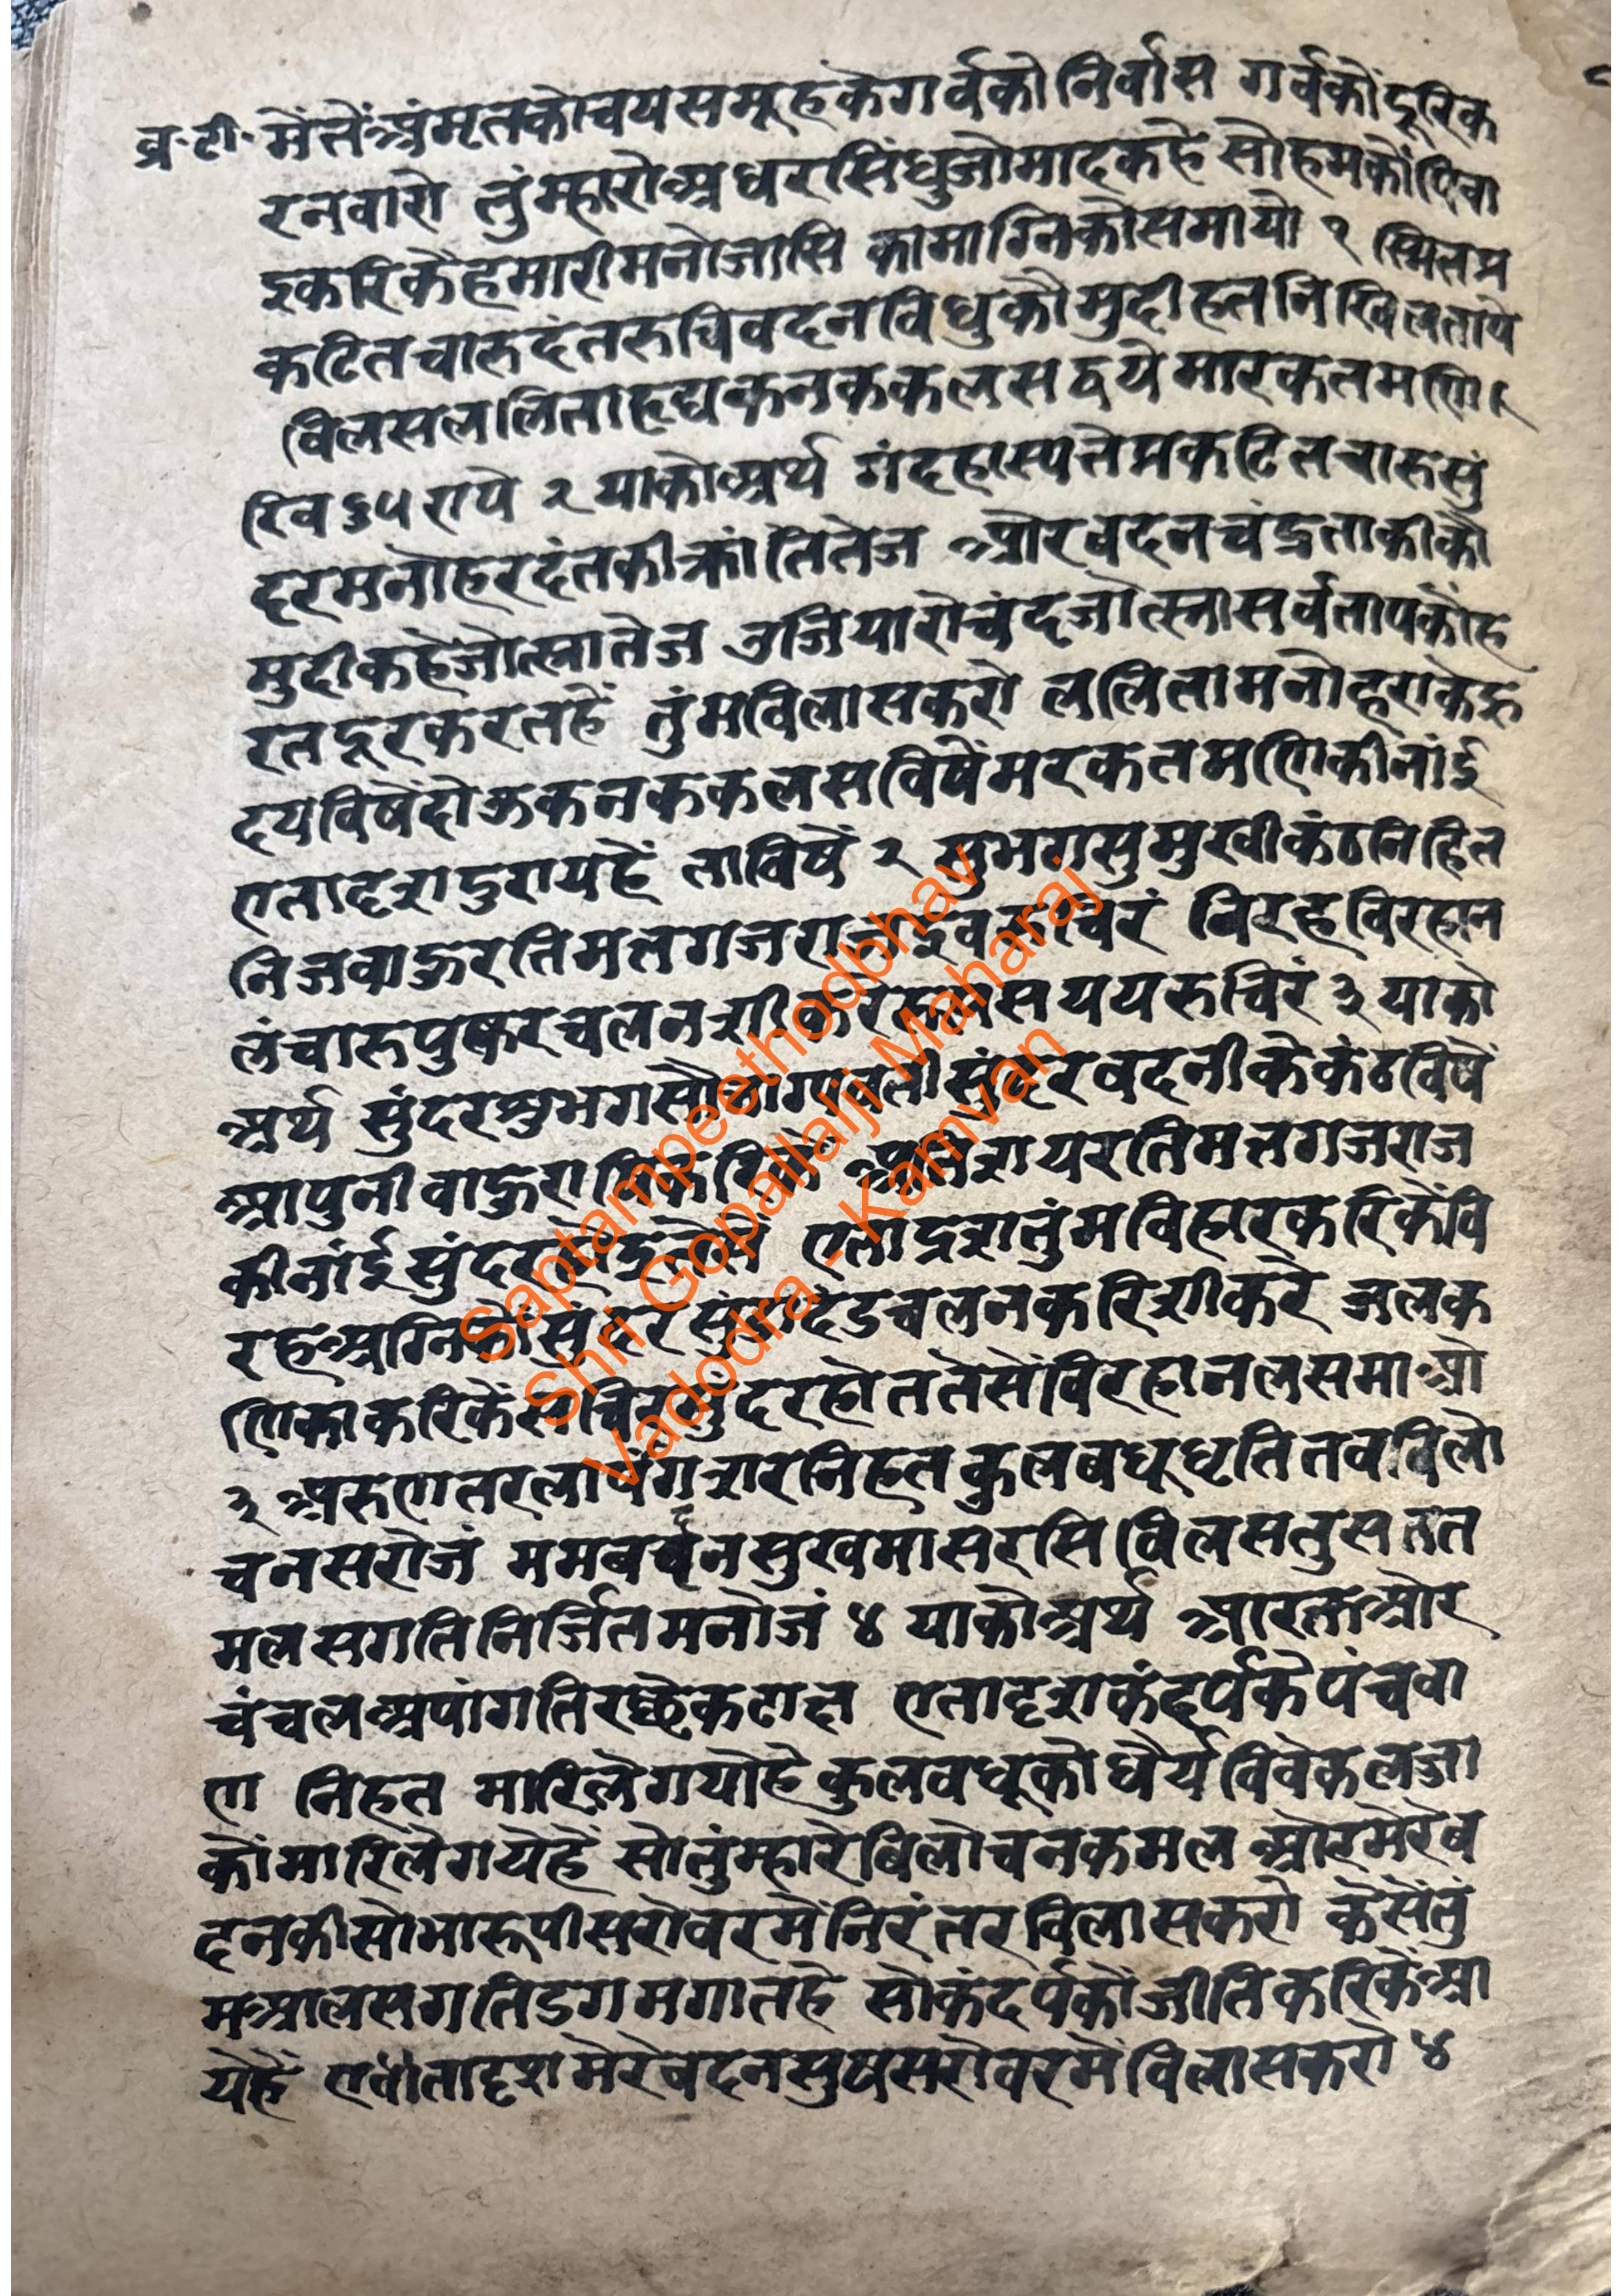 व्र·टी· मेंतेंअंमृतकोचयसमूहकेगर्वकोनिर्वास गर्वकोंदूरिक
रनवारो तुंम्हारोअधरसिंधुजोमादकहे सोहमकोंपिवा
इकरिकैहमारीमनोजासि कामाग्निकोसमायो १ स्मितप्र
कटितचारुदंतरुचिवदनविधुकौमुदीहतनिखिलतापे
विलसललिताहृद्यकनककलसद्वयेमारकतमणि
रिव दुरापे २ याकोअर्थ मंदहास्यतेप्रकटितचारुसुं
दरमनोहरदंतकीकांतितेज औरवदनचंद्रताकीकौ
मुदीकहेंजोत्स्नातेज उजियारोचंद्रजोत्स्नासर्वतापकोंह
रतदूरकरतहें तुंमविलासकरो ललितामनोहराकेहृ
दयविषेंदोऊकनककलसविषेंमरकतमणिकीनांई
एतादृशदुरायहें ताविषें २ सुभगसुमुखीकंठनिहित
निजबाहुरतिमत्तगजराजइवरुचिरं विरहविरहान
लंचारुपुष्करचलनशीकरे याको
अर्थ सुंदरसुभगसौभाग्यवतीसुंदरवदनीकेकंठविषें
आपुनीबाहु अतिशयरतिमत्तगजराज
कीनांईसुंदर एतादृशतुंमविहारकरिकेंवि
रहअग्निकों सुंदर चलनकरिशीकरे जलक
णिकाकरिकें सुंदरहोततेसेंविरहानलसमाओ
३ अरुणतरलापांगशरनिहतकुलबधूधृतितवविलो
चनसरोजं ममबदनसुखमासरसिविलसतुसतत
मलसगतिनिर्जितमनोजं ४ याकोअर्थ आरक्तऔर
चंचलअपांगतिरछेकटाक्ष एतादृशकंदर्पकेपंचबा
ण निहत मारिलेगयोहे कुलवधूकोधैर्यविवेकलज्जा
कोंमारिलेगयेहें सोतुंम्हारेबिलोचनकमल औरमेरेब
दनकीसोभारूपीसरोवरमेंनिरंतरविलासकरो केसेंतुं
मआलसगतिडगमगातहे सोकंदर्पकोंजीतिकरिकेंआ
येहें मेरेबदनसुषसरोवरमेंविलासकरो ४
Saptampeethodbhav
Shri Gopallalji Maharaj
Vadodra - Kamvan